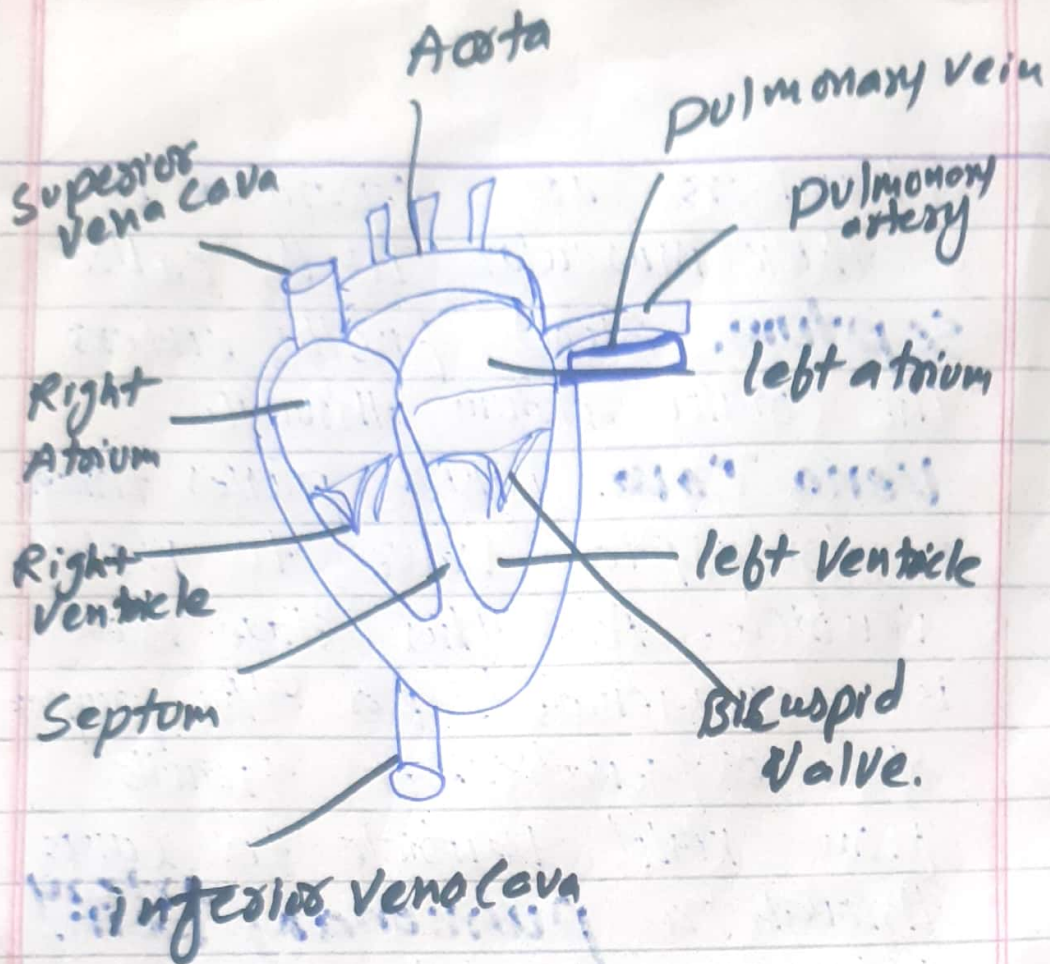 Aorta
Pulmonary vein
Superior
vena cava
Pulmonory
artery
Right
Atrium
left atrium
Right
Ventricle
left Ventricle
Septom
Bicuspid
Valve.
inferior Vena Cava